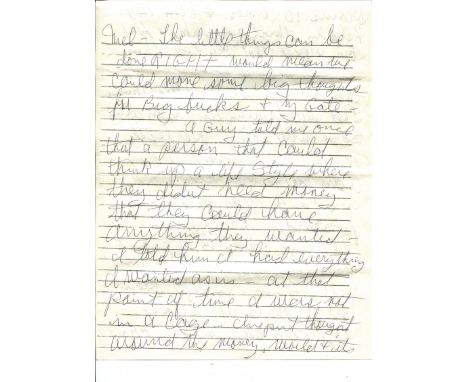 Mel - The little things can be
done RIGHT would mean we
could move some big thoughts
for Big bucks + my Gate -
A Guy told me once
that a person that could
think up a life style where
they didn't need money
that they could have
anything they wanted -
I told him I had everything
I wanted as is - at that
point of time I was not
in a Cage - thought
around the money, world + its